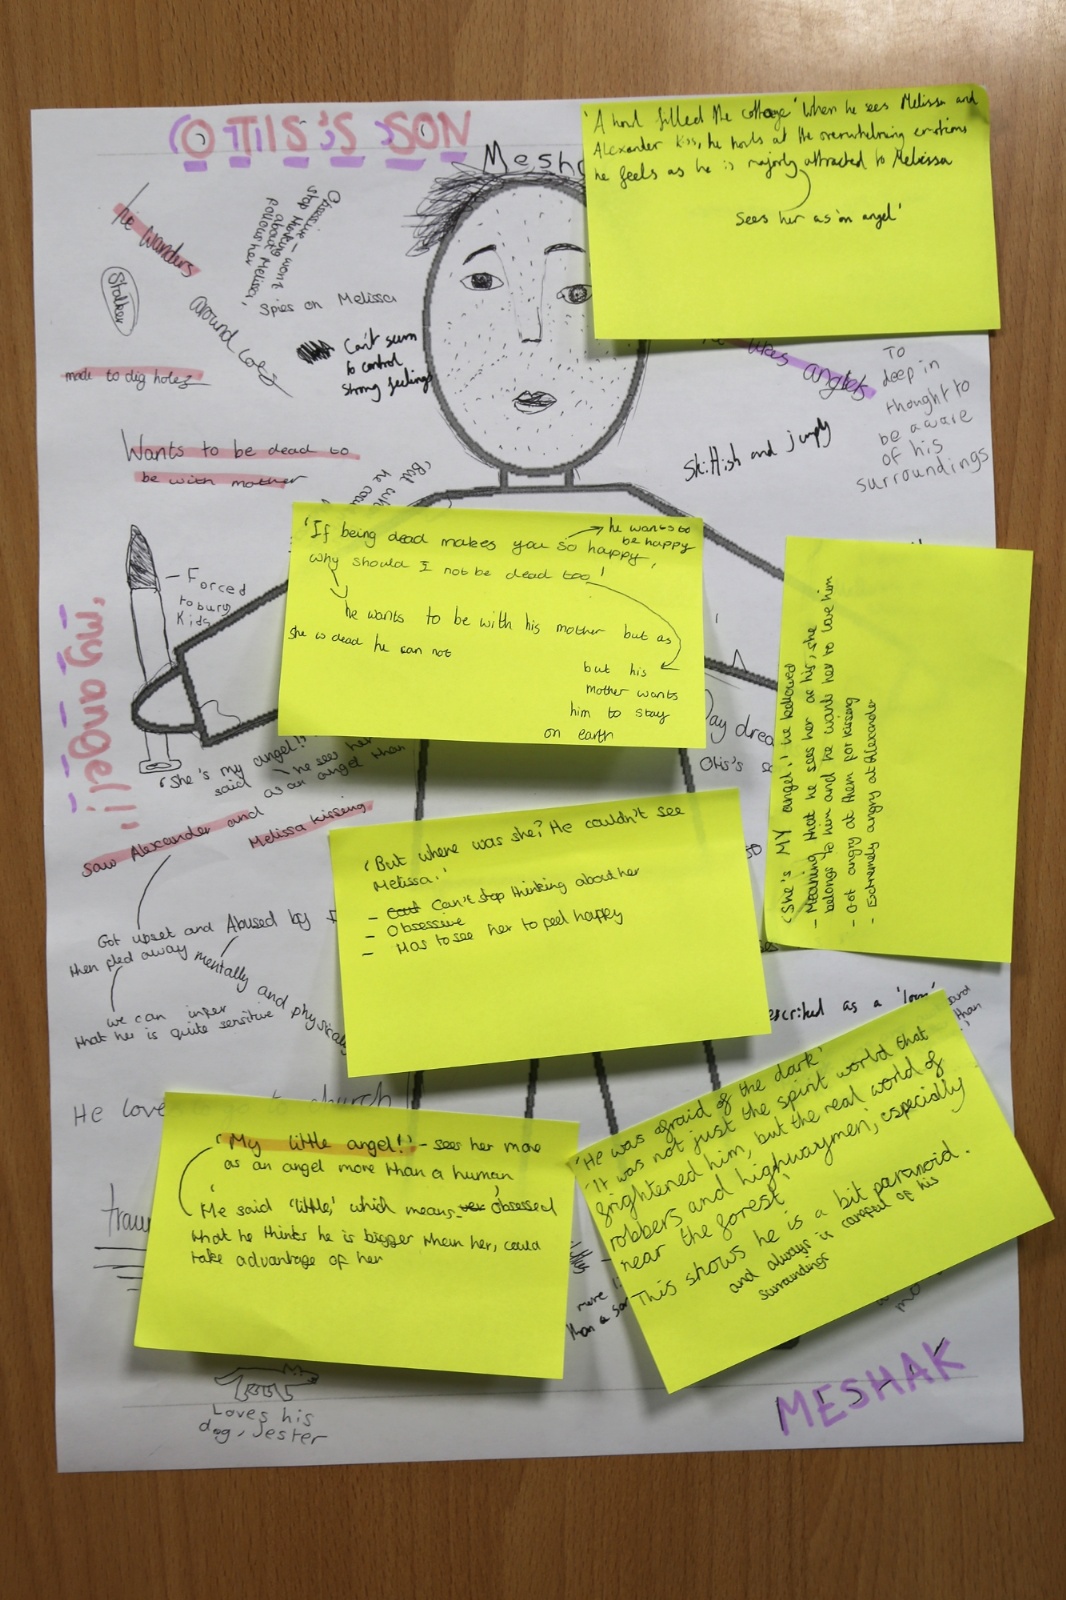 OTTIS'S SON
Mesh
'A howl filled the cottage' When he sees Melissa and
Alexander kiss, he howls at the overwhelming emotions
he feels as he is majorly attracted to Melissa
Sees her as 'an angel'
he wanders
around
Stalker
Obsessive - won't
stop thinking
about Melissa,
follows her
Spies on Melissa
Can't seem
to control
strong feelings
made to dig holes
likes angels
To
deep in
thought to
be aware
of his
surroundings
Skittish and jumpy
Wants to be dead to
be with mother
Forced
to bury
kids
'If being dead makes you so happy,
why should I not be dead too'
he wants to
be happy
he wants to be with his mother but as
she is dead he can not
but his
mother wants
him to stay
on earth
'She's MY angel!' he bellowed
- Meaning that he sees her as his, she
belongs to him and he wants her to love him
- Got angry at them for kissing
- Extremely angry at Alexander
'my angel!'
'She's my angel!'
said
he sees her
as an angel than
Day drea
Otis's s
Saw Alexander and
Melissa kissing
Got upset and
then fled away
Abused by
mentally and physically
we can infer
that her is quite sensitive
'But where was she? He couldn't see
Melissa.'
- Can't stop thinking about her
- Obsessive
- Has to see her to feel happy
escribed as a
He love
church
trau
'My little angel!' - sees her more
as an angel more than a human
He said 'little' which means obsessed
that he thinks he is bigger than her, could
take advantage of her
'He was afraid of the dark'
'It was not just the spirit world that
frightened him, but the real world of
robbers and highwaymen; especially
near the forest'
This shows he is a bit paranoid.
and always is careful of his
surroundings
more
than a
Loves his
dog, Jester
MESHAK